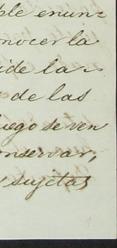 ble enun=
onocer la
ide la
de las
uego se ven
onservar,
sujetas